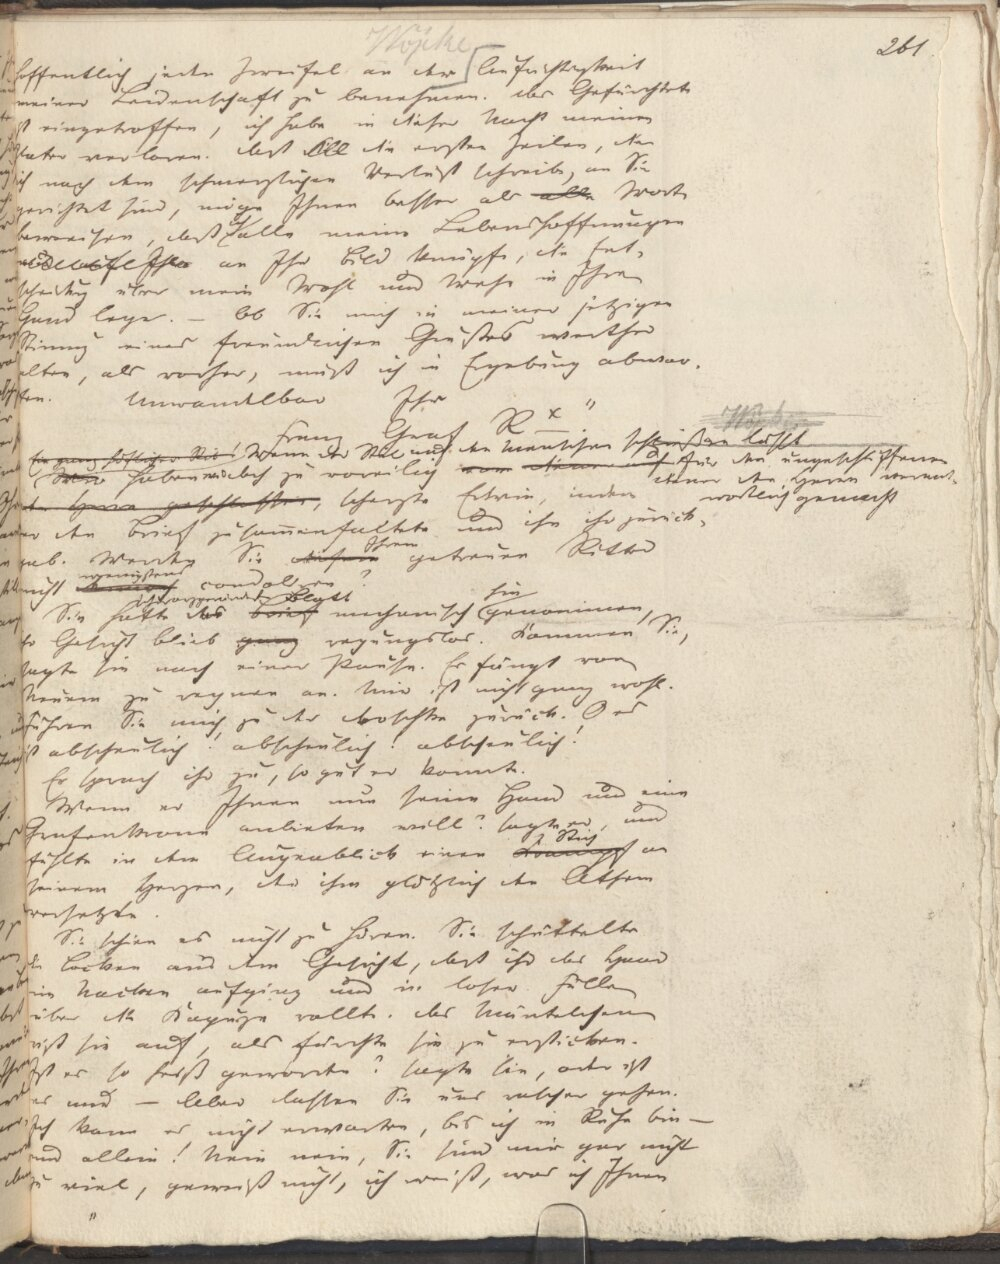 Wöpke
261
hoffentlich jeden Zweifel an der Aufrichtigkeit
meiner Leidenschaft zu benehmen. Das Gefürchtete
ist eingetroffen, ich habe in dieser Nacht meinen
Vater verloren. Daß die ersten Zeilen, die
ich nach dem schmerzlichen Verlust schreibe, an Sie
gerichtet sind, möge Ihnen besser als alle Worte
beweisen, daß alle meine Lebenshoffnungen
an Ihr Bild knüpfe, die Ent-
scheidung über mein Wohl und Wehe in Ihre
Hand lege. — Ob Sie mich in meiner jetzigen
Stimmung eines freundlichen Grußes werther
halten, als vorher, muß ich in Ergebung abwar-
ten. Unwandelbar Ihr
Franz Graf R x "
Wöpke
Wenn der Stil auf den Menschen schließen läßt
haben wir doch zu voreilig für den ungeschliffenen
Diener den Herrn verant-
wortlich gemacht
scherzte Erwin, indem
er den Brief zusammenfaltete und ihn ihr zurück-
gab. Werden Sie Ihrem getreuen Ritter
nicht wenigstens condoliren?
Sie hatte das Blatt mechanisch hingenommen,
ihr Gesicht blieb ganz regungslos. Kommen Sie,
sagte sie nach einer Pause. Es fängt von
Neuem zu regnen an. Mir ist nicht ganz wohl.
Führen Sie mich zu der Droschke zurück. O es
ist abscheulich! abscheulich! abscheulich!
Er sprach ihr zu, so gut er konnte.
Wenn er Ihnen nun seine Hand und eine
Grafenkrone anbieten will? sagte er, und
fühlte in dem Augenblick einen Stich an
seinem Herzen, der ihm plötzlich den Athem
versetzte.
Sie schien es nicht zu hören. Sie schüttelte
die Locken aus dem Gesicht, daß ihr das Haar
im Nacken aufging und in loser Fülle
über die Kapuze rollte. Das Mäntelchen
riß sie auf, als fürchte sie zu ersticken.
Ist es so heiß geworden? sagte sie, oder ist
es nur — Aber lassen Sie uns rascher gehen.
Ich kann es nicht erwarten, bis ich in Ruhe bin —
und allein! Nein nein, Sie sind mir gar nicht
zu viel, gewiß nicht, ich weiß, was ich Ihnen
"